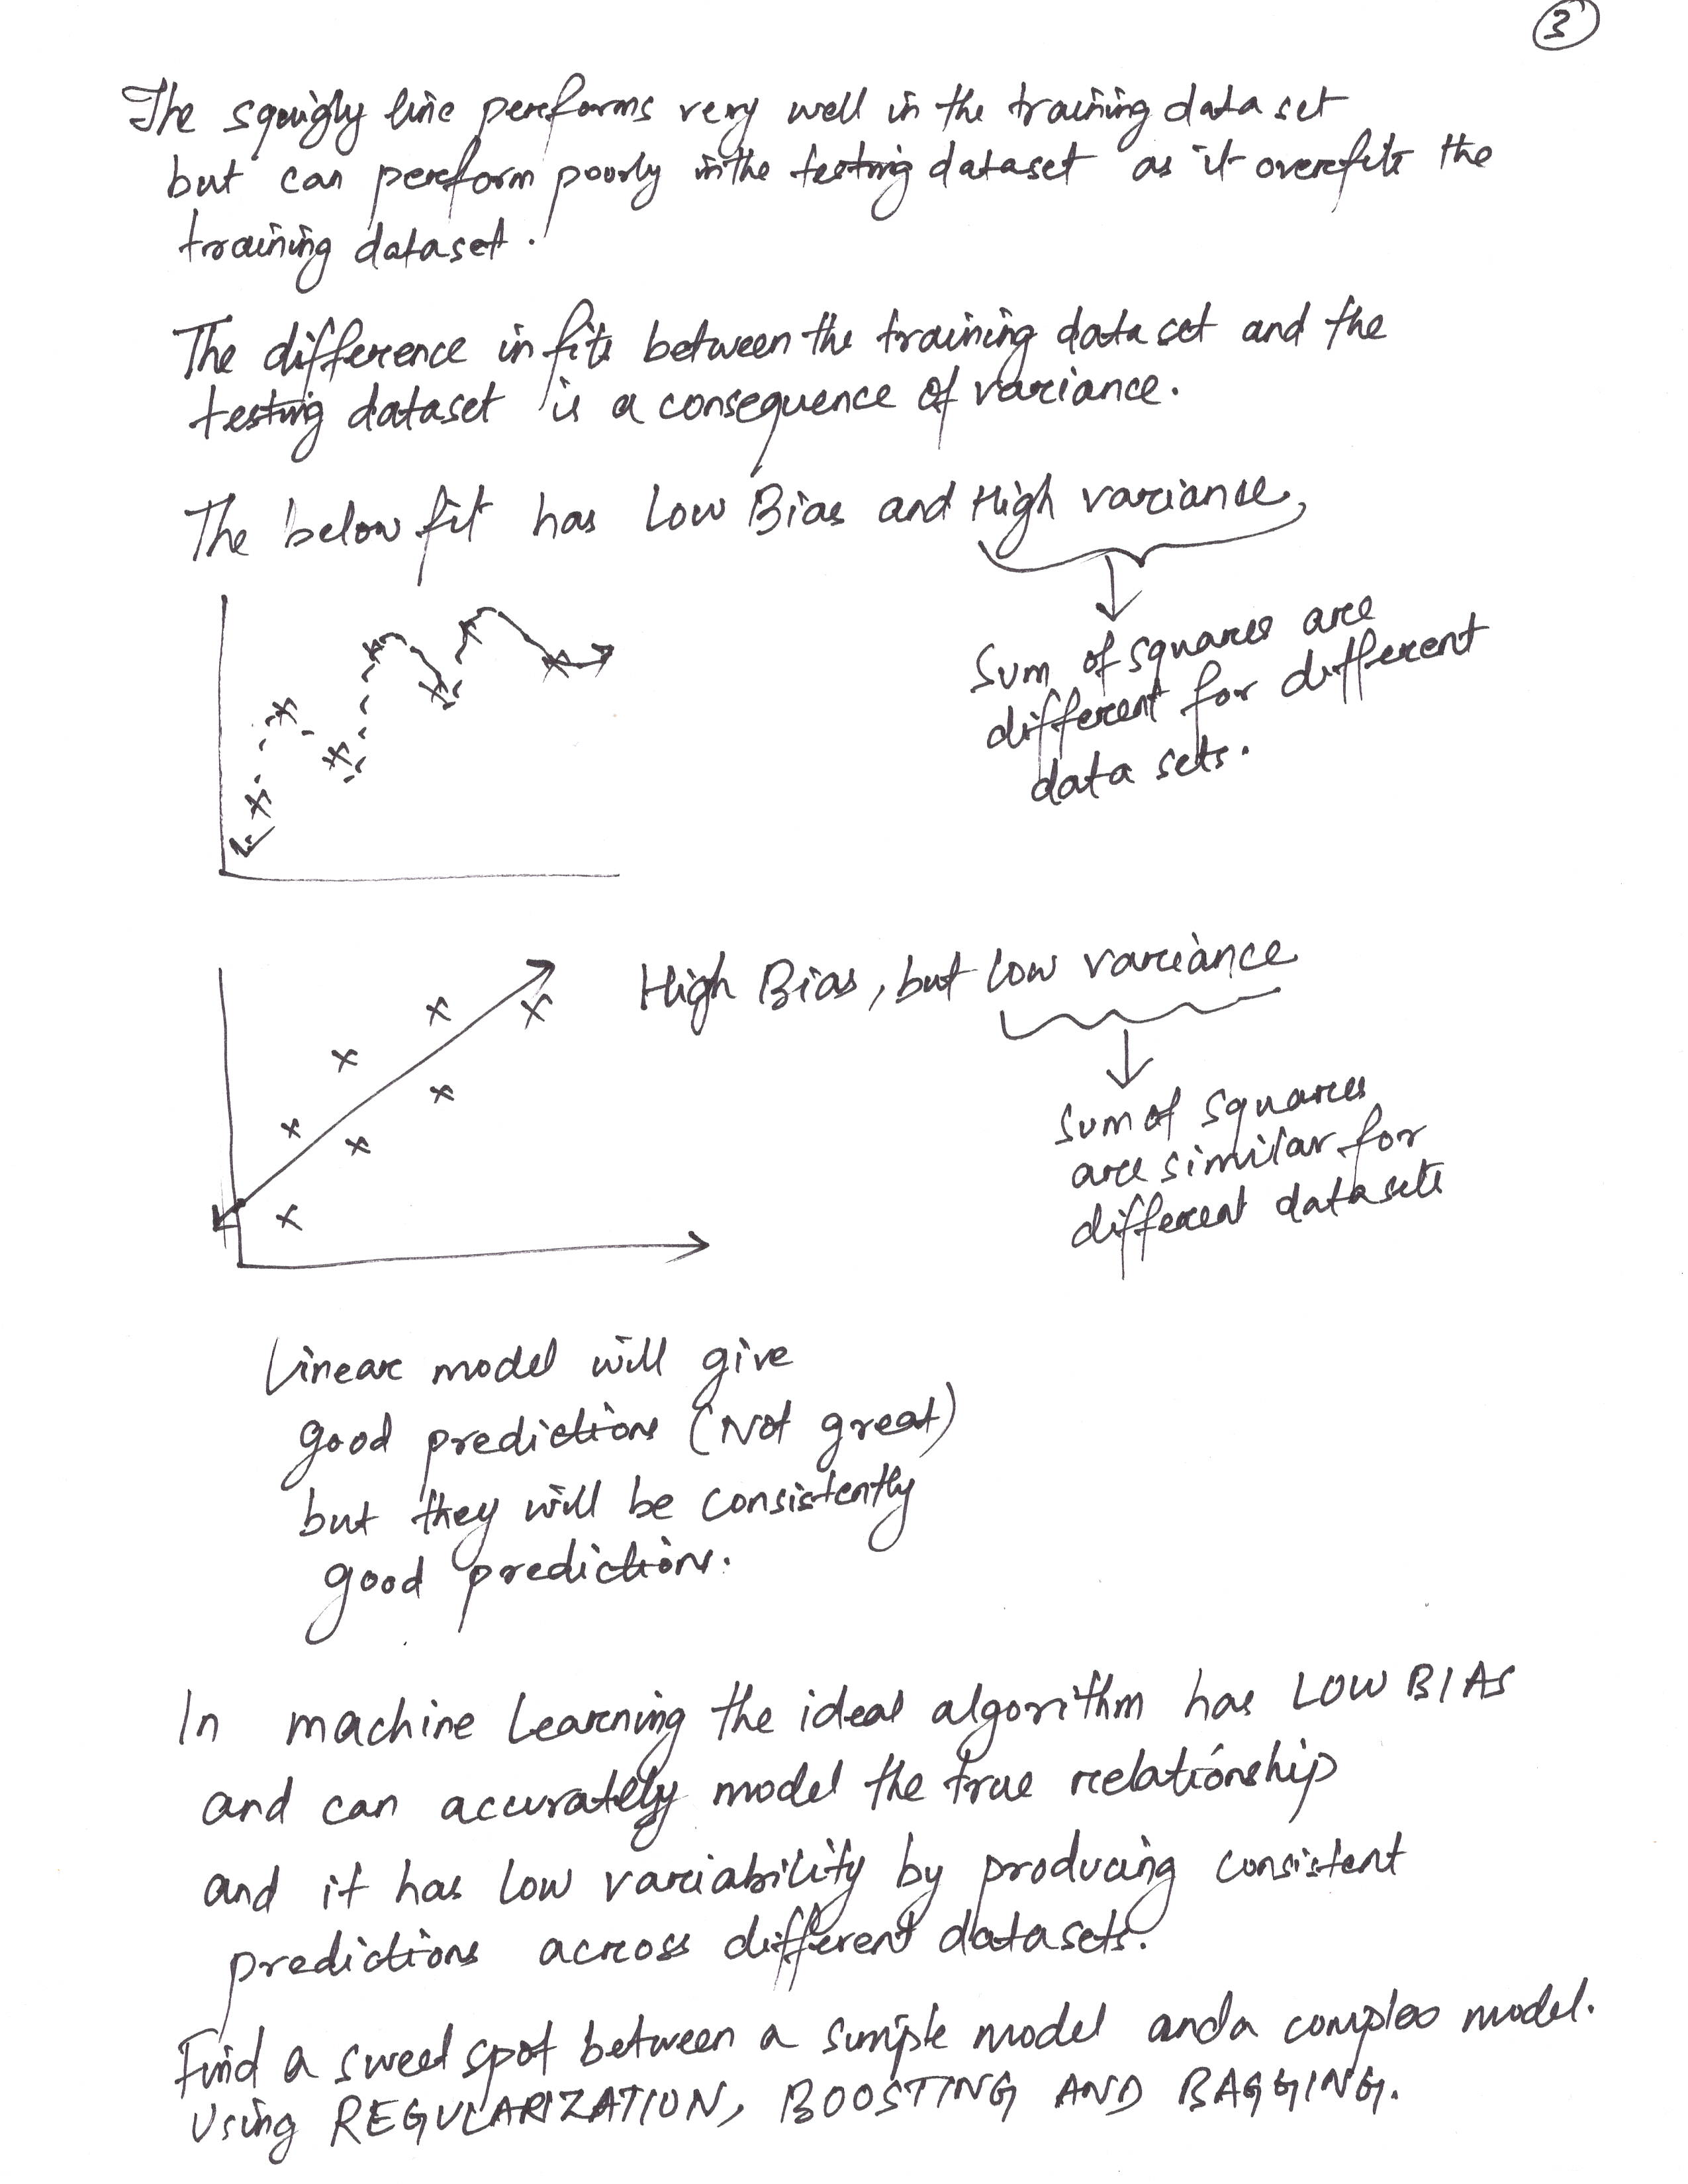 3
The squigly line performs very well in the training data set
but can perform poorly in the testing dataset as it overfits the
training dataset.
The difference in fits between the training data set and the
testing dataset is a consequence of variance.
The below fit has Low Bias and High variance,
Sum of squares are
different for different
data sets.
High Bias, but low variance
Sum of squares
are similar for
different datasets
Linear model will give
good predictions (Not great)
but they will be consistently
good predictions.
In machine learning the ideal algorithm has LOW BIAS
and can accurately model the true relationship
and it has low variability by producing consistent
predictions across different datasets.
Find a sweet spot between a simple model and a complex model.
Using REGULARIZATION, BOOSTING AND BAGGING.